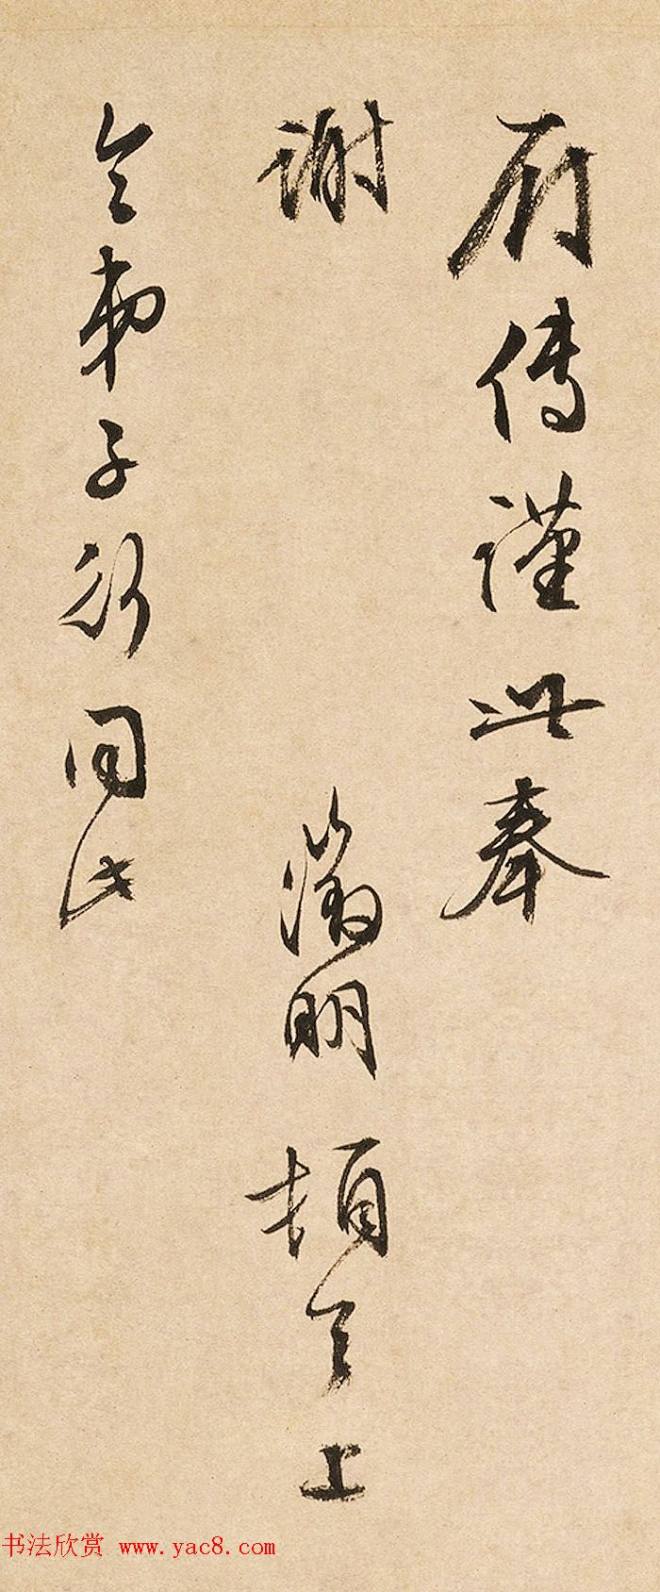 府傳謹此奉
謝
徵明頓首上
令弟子行同此
书法欣赏 www.yac8.com